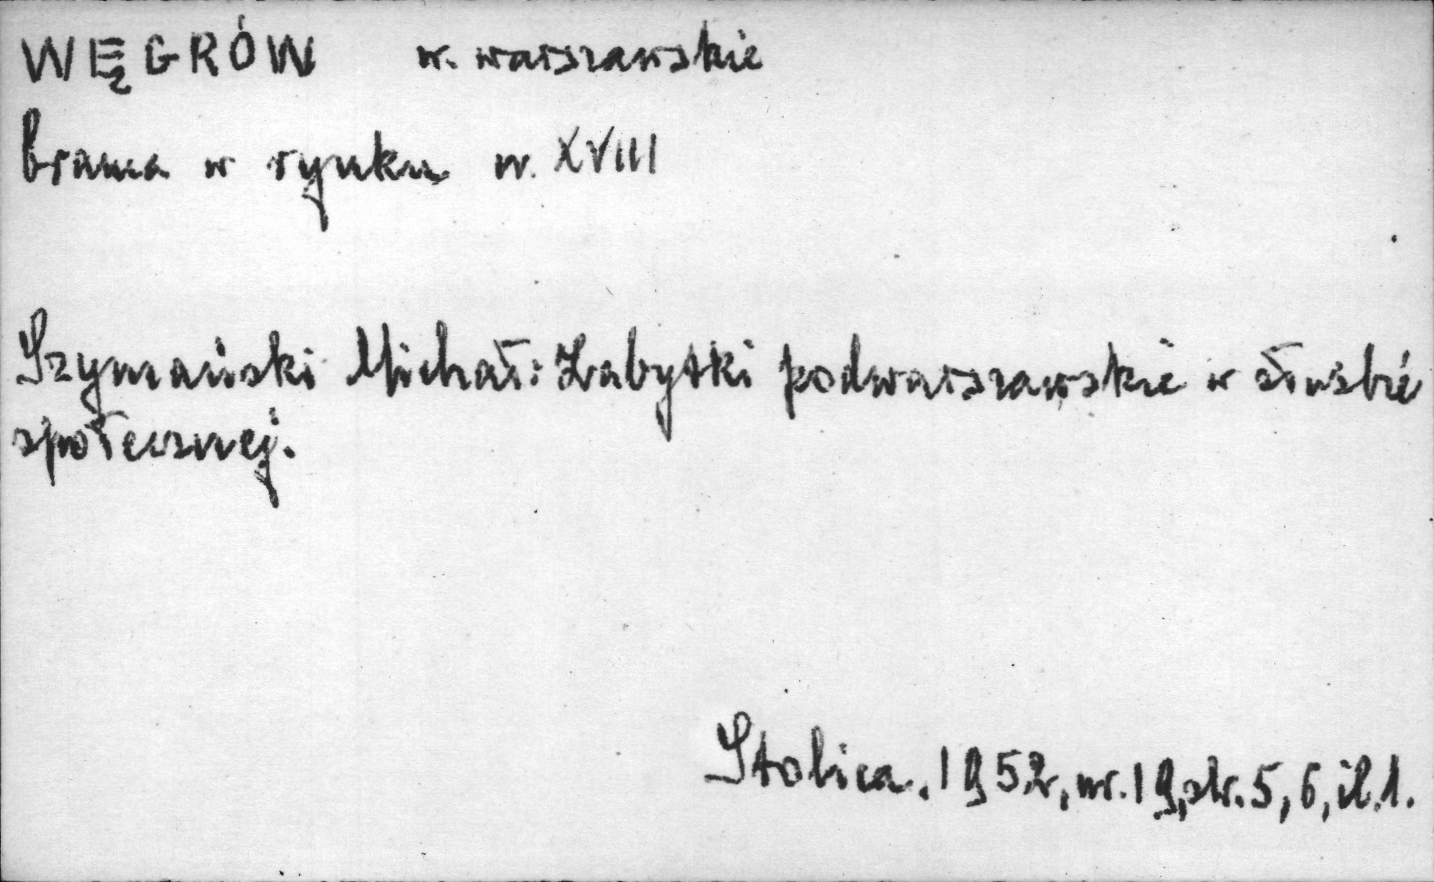 WĘGRÓW w. warszawskie
brama w rynku w. XVIII
Szymański Michał: Zabytki podwarszawskie w służbie
społecznej.
Stolica. 1952, nr. 19, str. 5, 6, il. 1.